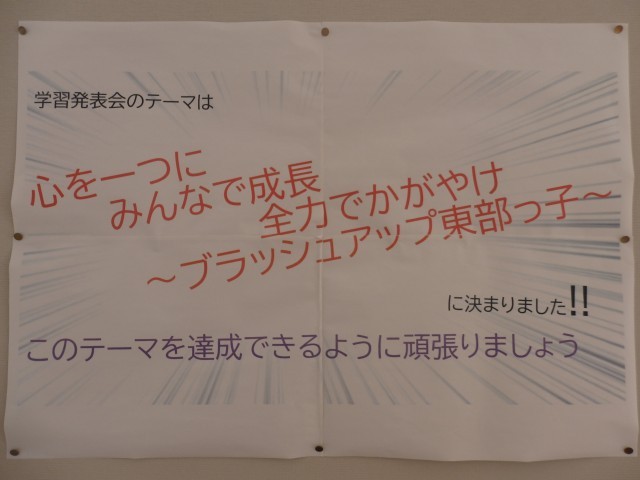 学習発表会のテーマは
心を一つに
みんなで成長
全力でかがやけ
～ブラッシュアップ東部っ子～
に決まりました!!
このテーマを達成できるように頑張りましょう